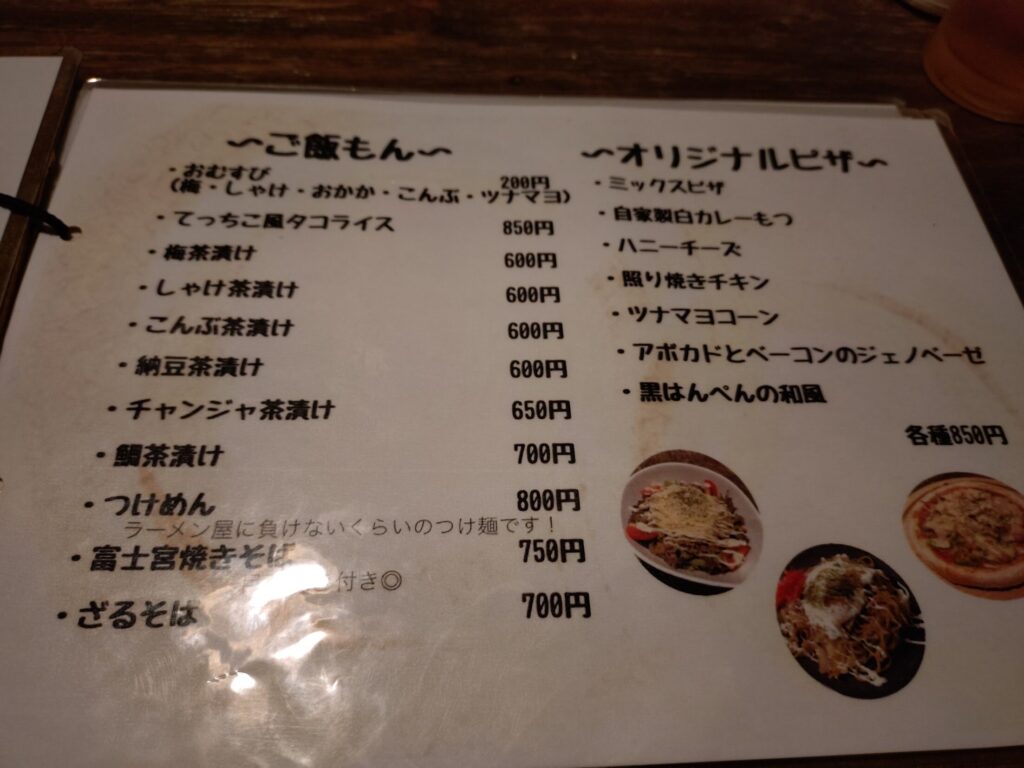 ～ご飯もん～
・おむすび 200円
(梅・しゃけ・おかか・こんぶ・ツナマヨ)
・てっちこ風タコライス 850円
・梅茶漬け 600円
・しゃけ茶漬け 600円
・こんぶ茶漬け 600円
・納豆茶漬け 600円
・チャンジャ茶漬け 650円
・鯛茶漬け 700円
・つけめん 800円
ラーメン屋に負けないくらいのつけ麺です！
・富士宮焼きそば 750円
付き◎
・ざるそば 700円
～オリジナルピザ～
・ミックスピザ
・自家製白カレーもつ
・ハニーチーズ
・照り焼きチキン
・ツナマヨコーン
・アボカドとベーコンのジェノベーゼ
・黒はんぺんの和風
各種850円